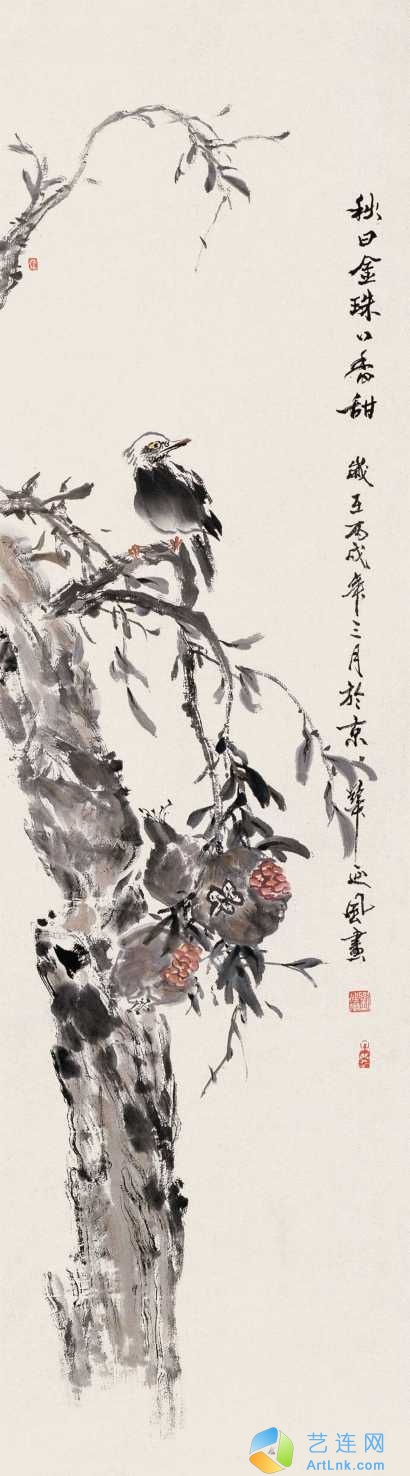 秋日金珠口香甜 歲在丙戌年三月於京華 延風畫
艺连网
ArtLnk.com